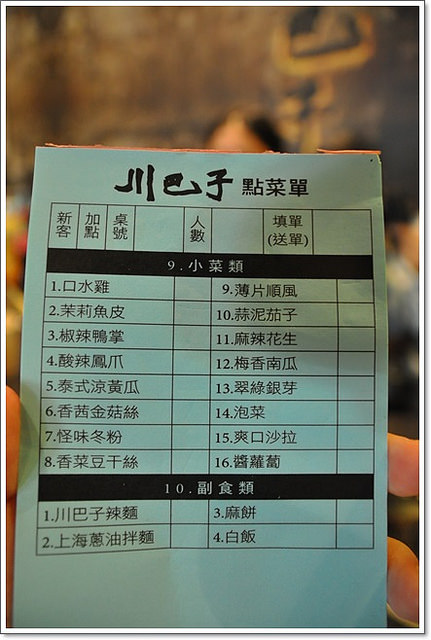 川巴子 點菜單
新客 加點 桌號 人數 填單(送單)
9.小菜類
1.口水雞 9.薄片順風
2.茉莉魚皮 10.蒜泥茄子
3.椒辣鴨掌 11.麻辣花生
4.酸辣鳳爪 12.梅香南瓜
5.泰式涼黃瓜 13.翠綠銀芽
6.香茜金菇絲 14.泡菜
7.怪味冬粉 15.爽口沙拉
8.香菜豆干絲 16.醬蘿蔔
10.副食類
1.川巴子辣麵 3.麻餅
2.上海蔥油拌麵 4.白飯